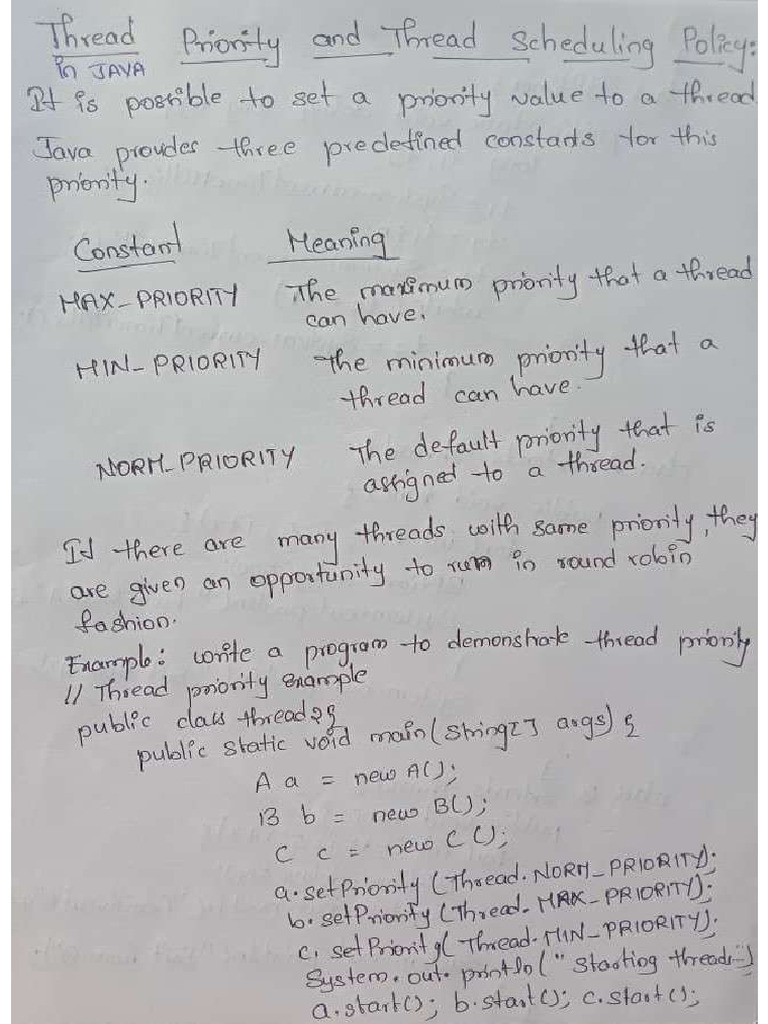 Thread Priority and Thread Scheduling Policy:
in JAVA
It is possible to set a priority value to a thread
Java provides three predefined constants for this
priority.
Constant Meaning
MAX_PRIORITY The maximum priority that a thread
can have.
MIN_PRIORITY The minimum priority that a
thread can have.
NORM_PRIORITY The default priority that is
assigned to a thread.
If there are many threads with same priority, they
are given an opportunity to run in round robin
fashion.
Example: write a program to demonstrate thread priority
// Thread priority Example
public class thread2{
public static void main(String[] args) {
A a = new A();
B b = new B();
C c = new C();
a.setPriority(Thread.NORM_PRIORITY);
b.setPriority(Thread.MAX_PRIORITY);
c.setPriority(Thread.MIN_PRIORITY);
System.out.println("Starting threads...")
a.start(); b.start(); c.start();